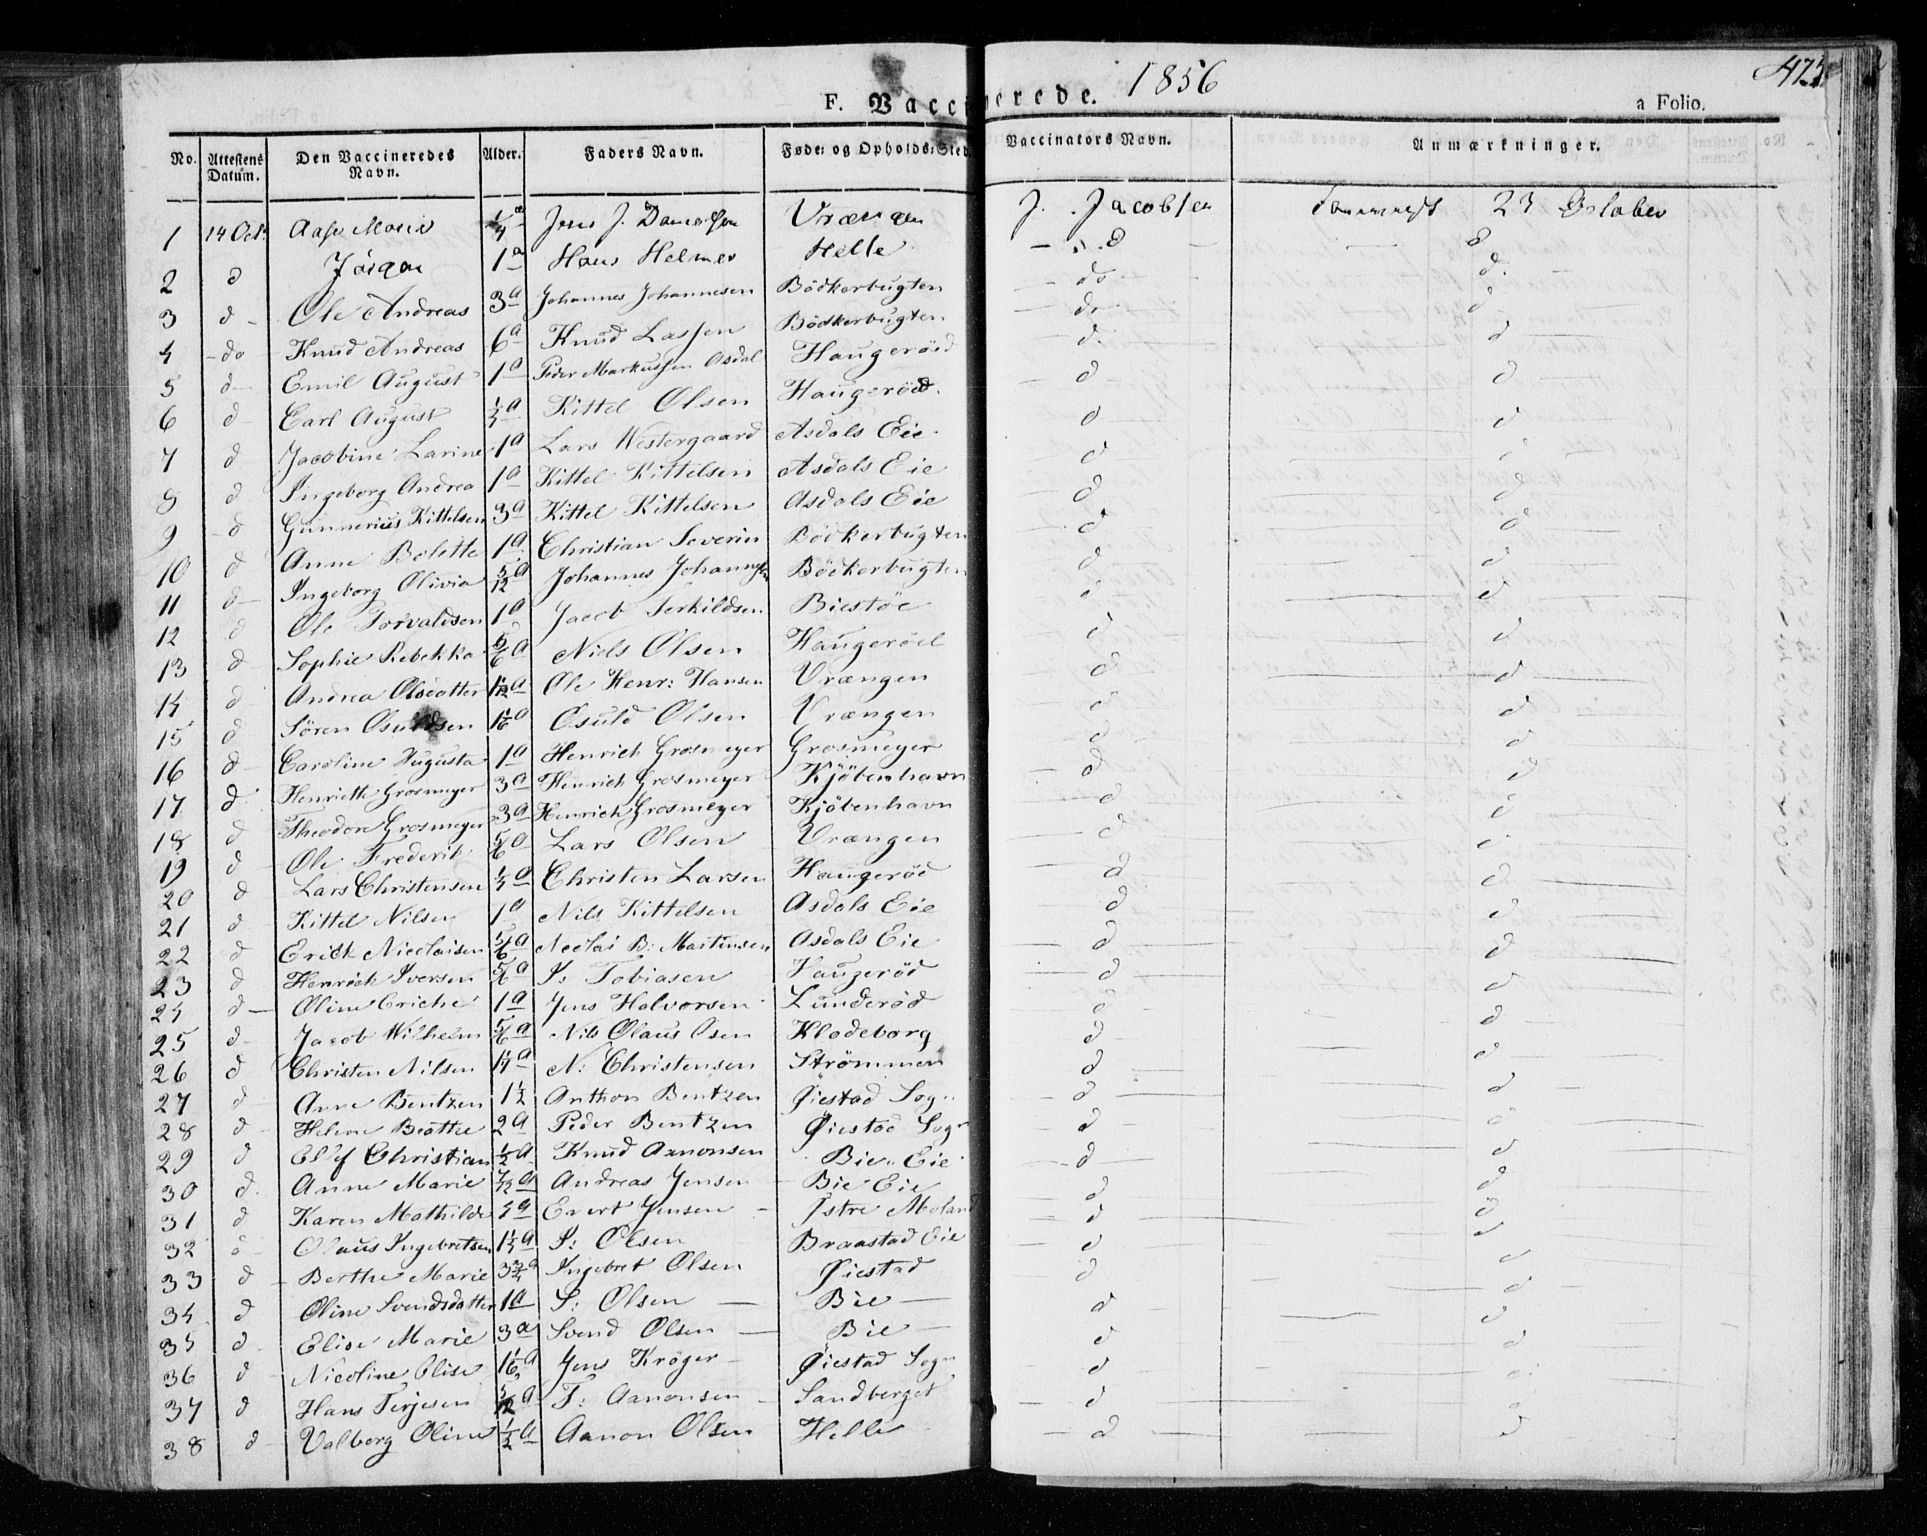 1856
423
F. Vaccinerede.
a Folio.
No. Attestens Datum. Den Vaccineredes Navn. Alder. Faders Navn. Føde- og Opholds-Sted Vaccinators Navn. Anmærkninger.
1 14 Oct. Aase Marie Jens J. Danielsen Vrængen J. Jacobsen 23 October
2 d Jörgen 1 a Hans Helmer Helle d d
3 d Ole Andreas 3 a Johannes Johannesen Bödkerbugten do d.
4 do Knud Andreas 6 a Knud Lassen Bödkerbugten do d
5 d Emil August 1 a Peder Markussen Asdal Haugeröed d. d
6 d Carl August Kittel Olsen Haugeröed. d d
7 d Jacobine Larine 1 a Lars Westergaard Asdals Eie d d
8 d Ingeborg Andrea 1 a Kittel Kittelsen Asdals Eie d
9 d Gunnerius Kittelsen 3 a Kittel Kittelsen Asdals Eie d d
10 d Anne Bolette 1 a Christian Severin Bödkerbugten d d
11 d Ingeborg Olivia 5/12 a Johannes Johannesen Bödkerbugten d d
12 d Ole Torvaldsen 1 a Jacob Terkildsen Biestöe d d
13 d Sophie Rebekka 5/6 a Niels Olsen Haugeröed d d
14 d Andrea Olsdatter Ole Henr: Hansen Vrængen d d
15 d Sören Osuldsen 1 1/6 a Osuld Olsen Vrængen d d
16 d Caroline Augusta 1 a Henrich Grosmeyer Grosmeyer d d
17 d. Henrieth Grosmeyer 3 a Henrich Grosmeyer Kjöbenhavn d d
18 d Theodore Grosmeyer 3 a Henrich Grosmeyer Kjöbenhavn d d
19 d Ole Frederik 5/6 a Lars Olsen Vrængen d d
20 d Lars Christensen Christen Larsen Haugeröd d d
21 d Kittel Nilsen 1 a Nils Kittelsen Asdals Eie d d
22 d Erick Nicolaisen 5/6 a Nicolai B: Martinsen Asdals Eie d d
23 d Henrich Iversen 5/6 a I: Tobiasen Haugeröd d d
24 d Oline Eriche 1 a Jens Halvorsen Lunderöd d d
25 d Jacob Wilhelm 5/6 a Nils Olaus Osen Klodeborg d d
26 d Christen Nilsen N: Christensen Strömmen d d
27 d Anne Bentzen 1 1/2 Anthon Bentzen Öiestad Sogn d d
28 d Helene Beathe 2 a Peder Bentzen Öiestad Sogn d d
29 d Oluf Christian 1/2 a Knud Aanonsen Bie Eie d d
30 d. Anne Marie 7/12 a Andreas Jensen Bie Eie d d
31 d Karen Mathilde Evert Jensen Östre Moland d d
32 d Olaus Ingebretsen I: Olsen Braastad Eie d d
33 d Berthe Marie Ingebret Olsen Öiestad d d
34 d Oline Svendsdatter 1 a S: Olsen Bie d d
35 d Elise Marie 3 a Svend Olsen Bie d d
36 d Nicoline Elise 1 1/6 a Jens Kröger Öiestad Sogn d d
37 d Hans Terjesen T: Aanonsen Sandberget d
38 d Valborg Oline 1/2 a Aanon Olsen Helle d d